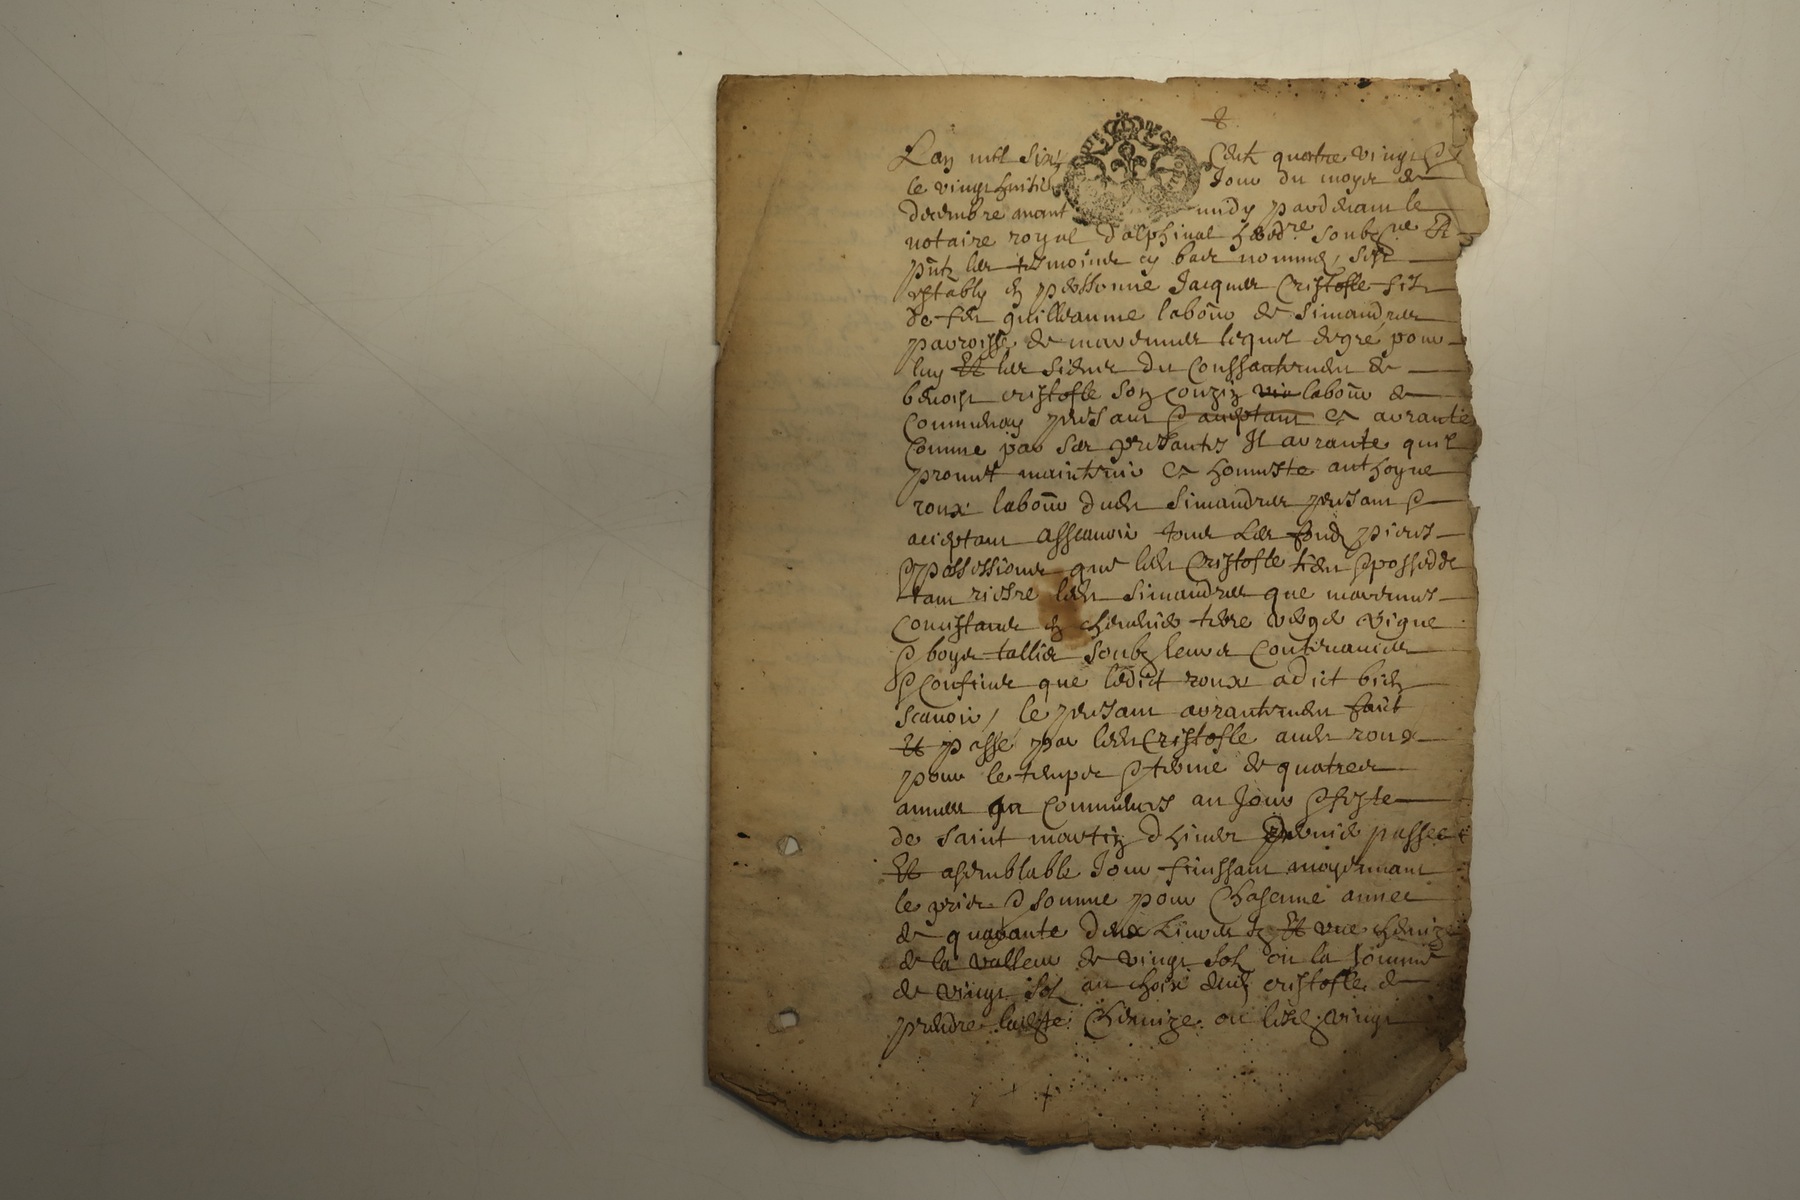 Lan mil six cent quatre vingt
le vingt huitie Jour du moys de
decembre avant midy pardevant le
notaire royal dalphinal heredre soubzne Et
pnts les tesmoins cy bas nommes, sest
establi en personne Jacques Cristofle fils
de feu guilleaume labour de Simandres
parroisse de marennes lequel de gre pour
luy Et les siens du consentement de
benoist cristofle son couzin labour de
Communay present acceptant Et arrante
comme par ses presantes Il arrante quil
promet maintenir Et honneste anthoyne
roux labour dudt Simandres present &
acceptant asscavoir tous Les fonds pieces
& possessions que ledt Cristofle tient & possedde
tant riesre ledt Simandres que marennes
consistants en terre verger vigne
& boys tallier soubz leurs contenances
& confins que ledict roux a dict bien
scavoir, le present arrantement faict
Et passe par ledt Cristofle audt roux
pour le temps & terme de quatre
annees commences au Jour & feste
de saint martin dhiver dernier passee
Et a semblable Jour finissant moyennant
le prix & somme pour Chascune annee
de quarante deux Livres Et une chemize
de la valleur de vingt sol ou la somme
de vingt sol au choix dud cristofle de
prendre ladte Chemize ou lesd vingt